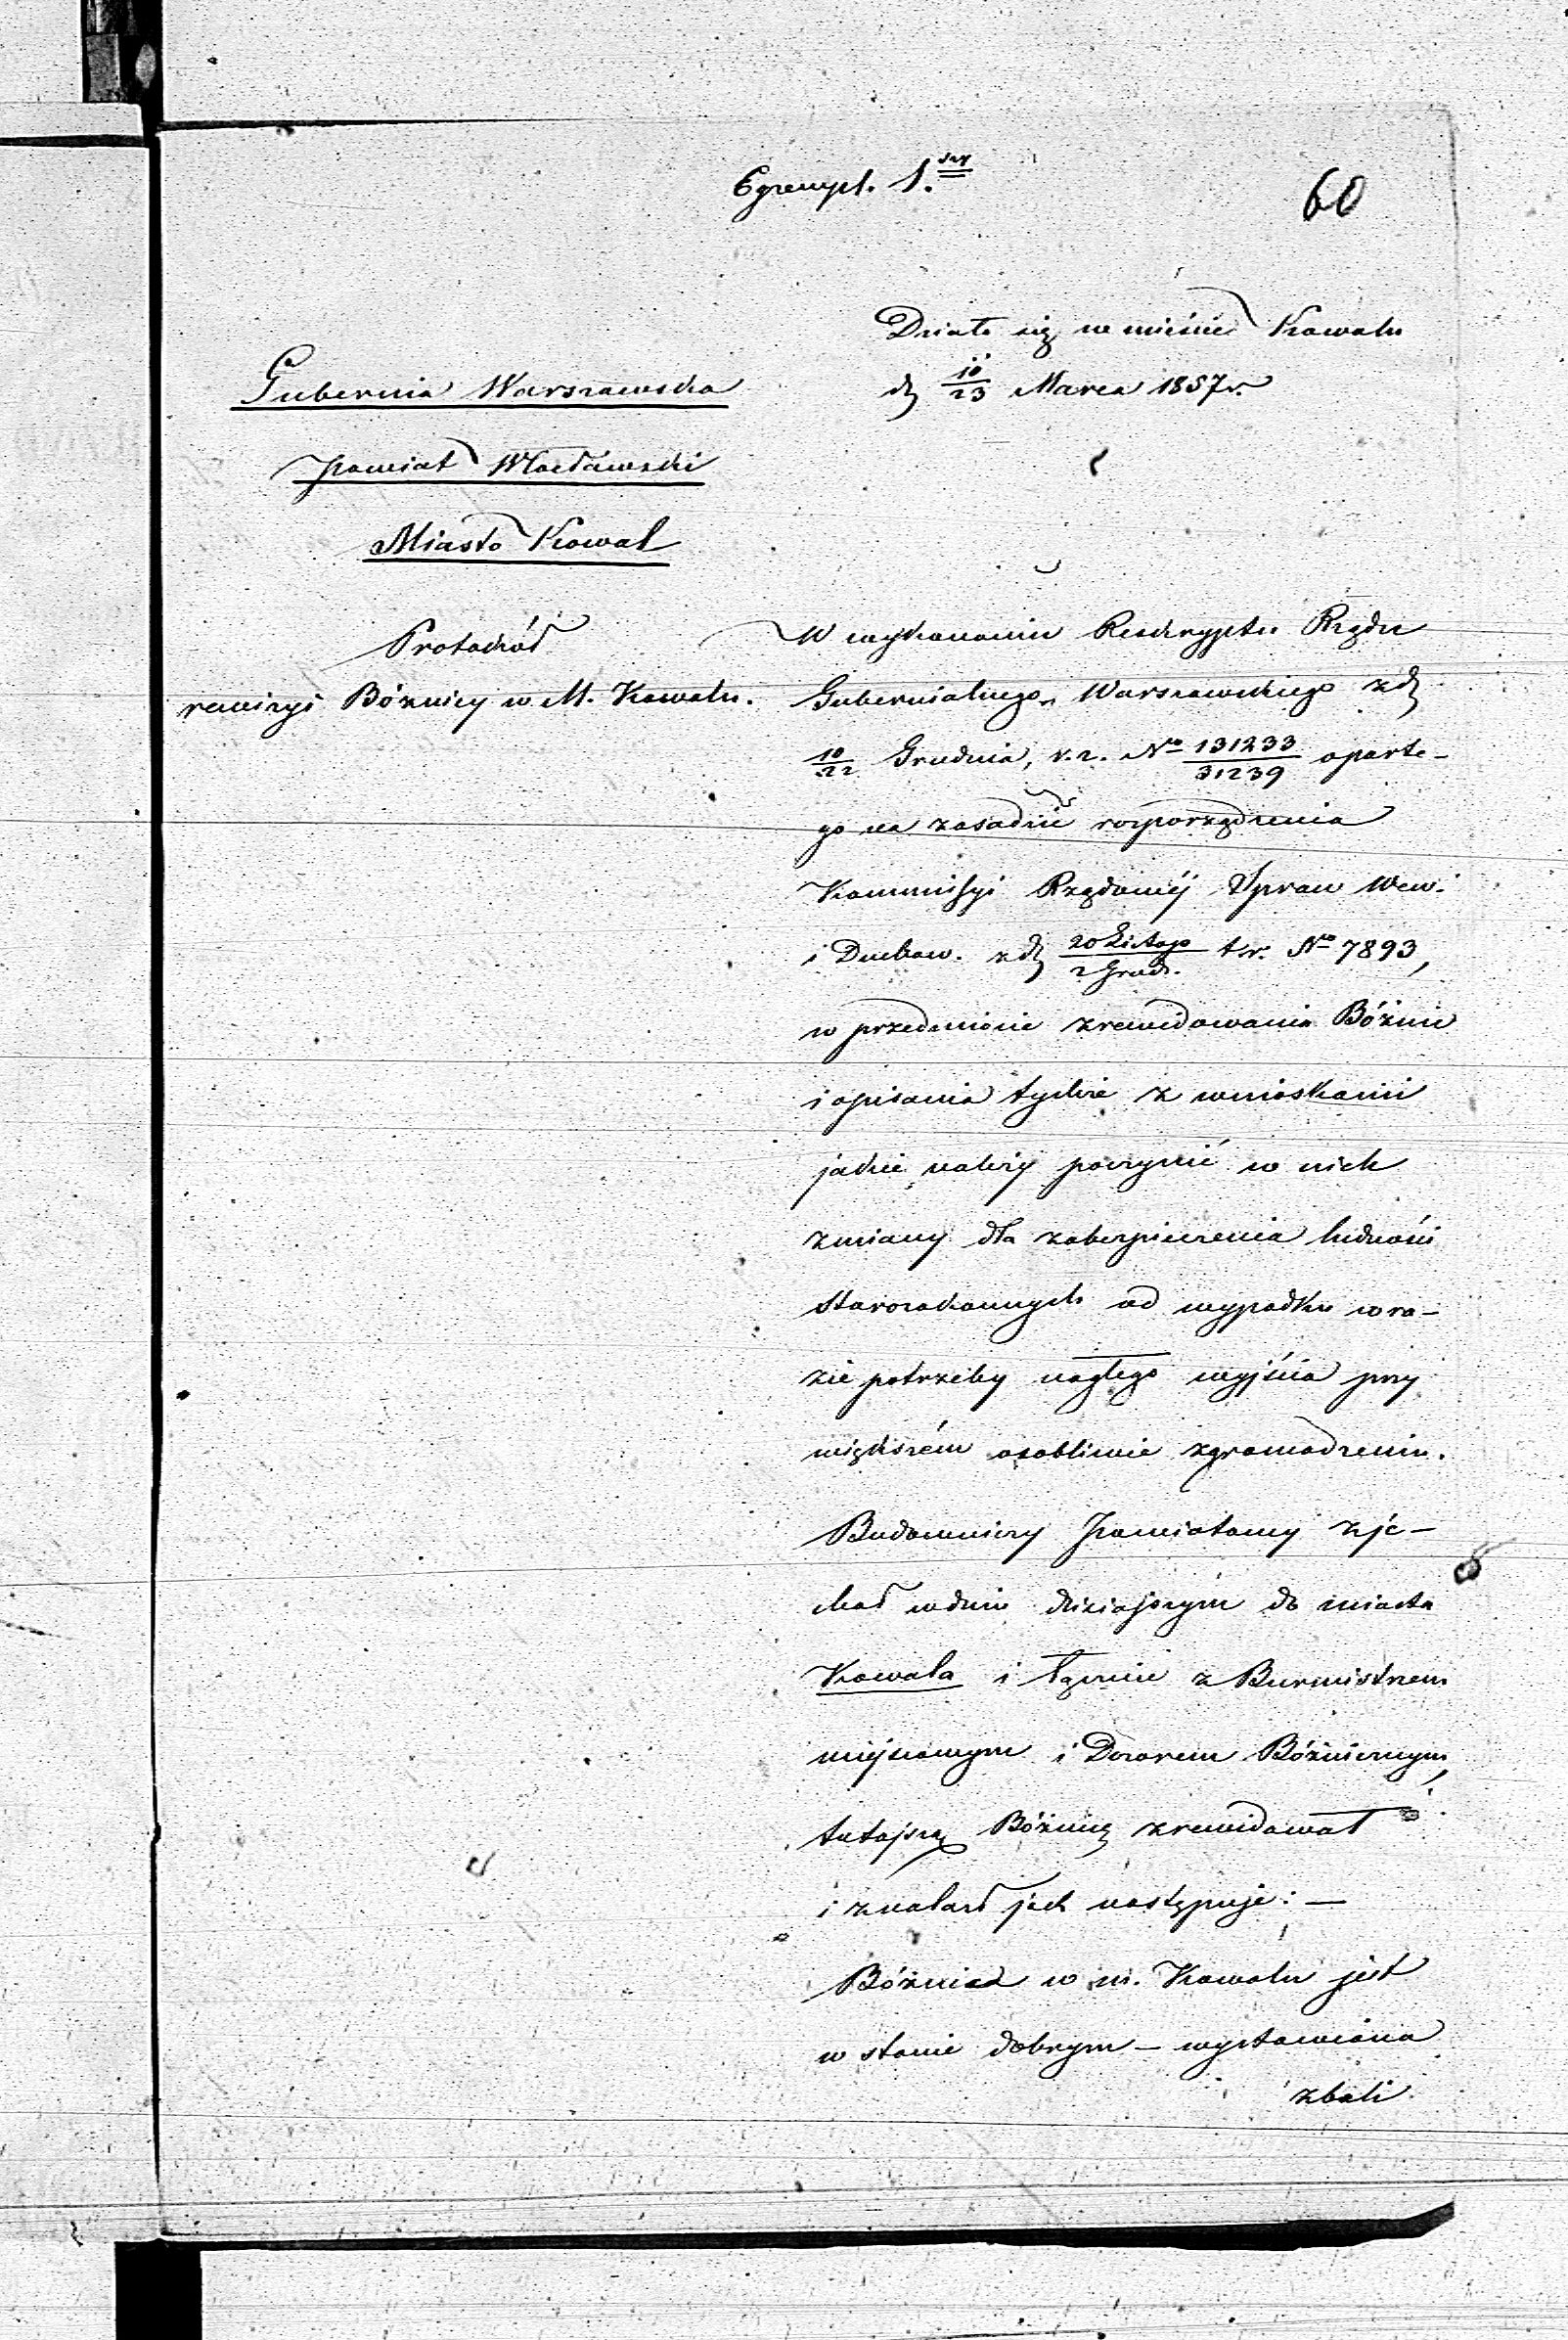 Egzempl. 1.szy
60
Działo się w mieście Kowalu
d. 10/23 Marca 1857 r.
Gubernia Warszawska
Powiat Włocławski
Miasto Kowal
Protokół
rewizyi Bóżnicy w M. Kowalu.
W wykonaniu Reskryptu Rządu
Gubernialnego Warszawskiego z d.
10/22 Grudnia, r. z. No 131233/31239 oparte-
go na zasadzie rozporządzenia
Kommissyi Rządowéj Spraw Wew.
i Duchow. z d. 20 Listop/2 Grud. t. r. No 7893,
w przedmiocie zrewidowania Bóżnic
i opisania tychże z wnioskami
jakie należy poczynić w nich
zmiany dla zabezpieczenia ludności
Starozakonnych od wypadku w ra-
zie potrzeby nagłego wyjścia przy
większém osobliwie zgromadzeniu.
Budowniczy Powiatowy zje-
chał w dniu dzisiejszym do miasta
Kowala i łącznie z Burmistrzem
miejscowym i Dozorem Bóżniczym,
tutejszą Bóżnicę zrewidował
i znalazł jak następuje: —
Bóżnica w m. Kowalu jest
w stanie dobrym — wystawiona
z bali